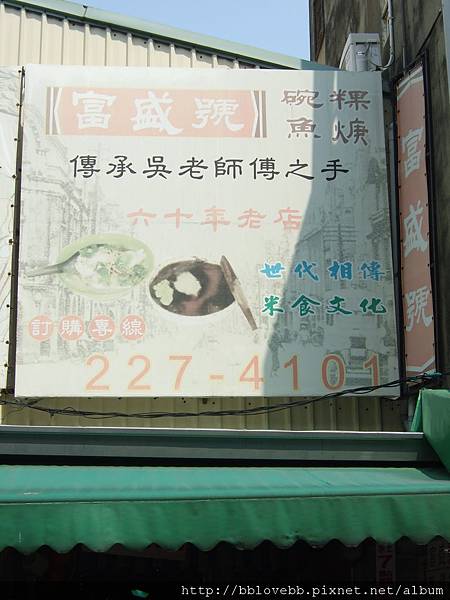 富盛號
碗粿
魚焿
傳承吳老師傅之手
六十年老店
世代相傳
米食文化
訂購專線
227-4101
富盛號
http://bblovebb.pixnet.net/album